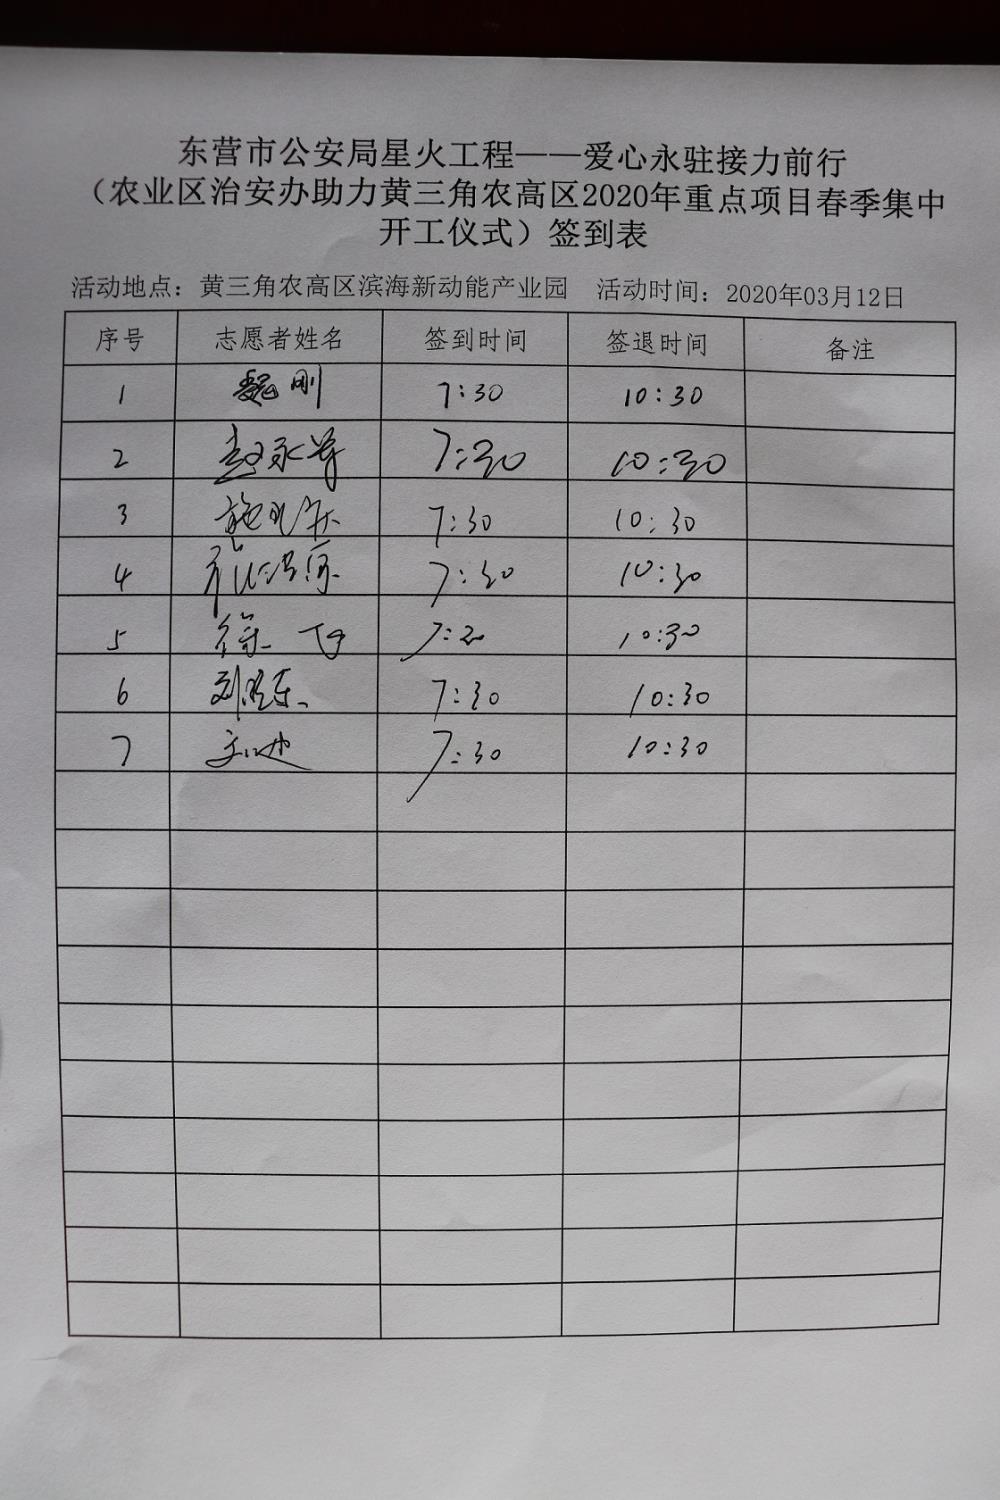 东营市公安局星火工程——爱心永驻接力前行
（农业区治安办助力黄三角农高区2020年重点项目春季集中
开工仪式）签到表
活动地点：黄三角农高区滨海新动能产业园 活动时间：2020年03月12日
序号 志愿者姓名 签到时间 签退时间 备注
1 魏刚 7:30 10:30
2 赵永 7:30 10:30
3 7:30 10:30
4 7:30 10:30
5 徐 7:20 10:30
6 刘 东 7:30 10:30
7 7:30 10:30